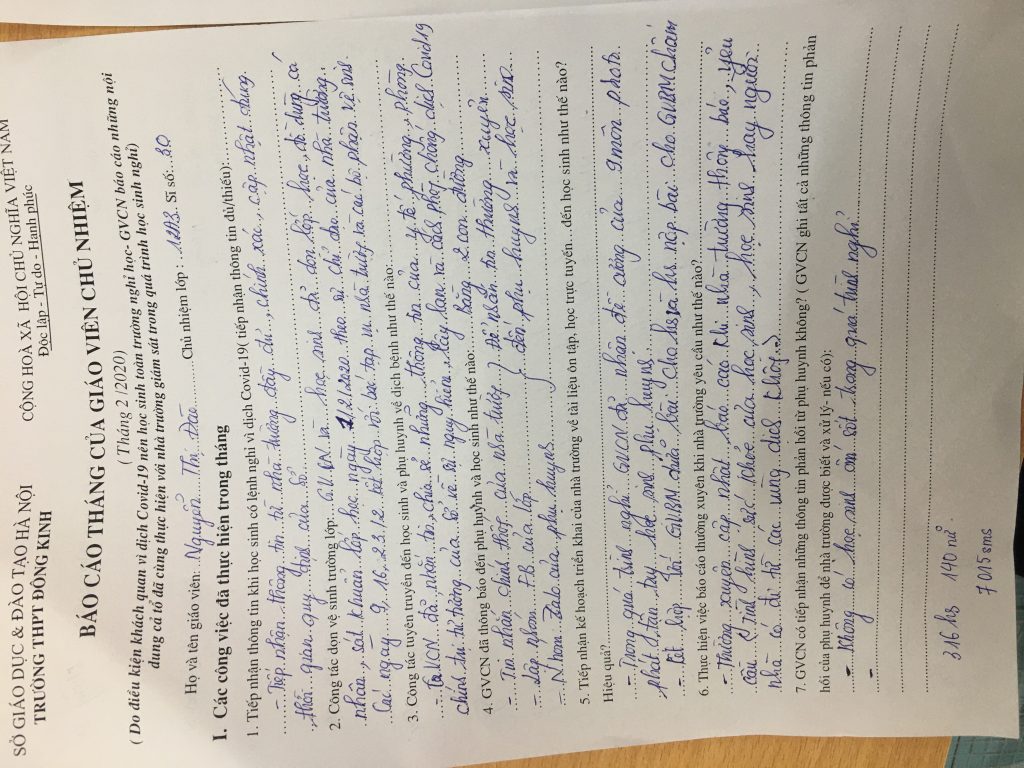 SỞ GIÁO DỤC & ĐÀO TẠO HÀ NỘI
TRƯỜNG THPT ĐÔNG KINH
CỘNG HOÀ XÃ HỘI CHỦ NGHĨA VIỆT NAM
Độc lập - Tự do - Hạnh phúc
BÁO CÁO THÁNG CỦA GIÁO VIÊN CHỦ NHIỆM
( Tháng 2 / 2020)
( Do điều kiện khách quan vì dịch Covid-19 nên học sinh toàn trường nghỉ học- GVCN báo cáo những nội
dung cá tổ đã cùng thực hiện với nhà trường giám sát trong quá trình học sinh nghỉ)
Họ và tên giáo viên: Nguyễn Thị Đào Chủ nhiệm lớp : Sĩ số: 30
I. Các công việc đã thực hiện trong tháng
1. Tiếp nhận thông tin khi học sinh có lệnh nghỉ vì dịch Covid-19( tiếp nhận thông tin đủ/thiếu):
- Tiếp nhận thông tin từ nhà trường đầy đủ, chính xác, cập nhật đúng
thời gian quy định của Sở
2. Công tác dọn vệ sinh trường lớp: GVCN và học sinh đã dọn lớp học, đồ dùng cá
nhân, sát khuẩn lớp học ngày 1/2/2020 theo sự chỉ đạo của nhà trường.
Các ngày 9, 16, 23/2 kết hợp với bếp nhà trường và các bộ phận vệ sinh
3. Công tác tuyên truyền đến học sinh và phụ huynh về dịch bệnh như thế nào:
- GVCN đã nhắn tin, chia sẻ những thông tin của y tế phường, phòng
chính trị tư tưởng của Sở về sự nguy hiểm, lây lan và cách phòng chống dịch Covid 19
4. GVCN đã thông báo đến phụ huynh và học sinh như thế nào: bằng 2 con đường
- Tin nhắn chính thức của nhà trường } Để nhắn tin thường xuyên
- Lập nhóm FB của lớp đến phụ huynh và học sinh
- Nhóm Zalo của phụ huynh
5. Tiếp nhận kế hoạch triển khai của nhà trường về tài liệu ôn tập, học trực tuyến... đến học sinh như thế nào?
Hiệu quả?
- Trong quá trình nghỉ GVCN đã nhận đề cương của 9 môn photo
phát đến tay học sinh, phụ huynh
- Kết hợp với GVBM chữa bài cho hs và hs nộp bài cho GVBM chấm
6. Thực hiện việc báo cáo thường xuyên khi nhà trường yêu cầu như thế nào?
- Thường xuyên cập nhật, báo cáo khi nhà trường thông báo, yêu
cầu (Tình hình sức khỏe của học sinh, học sinh hay người
nhà có đi từ các vùng dịch không...)
7. GVCN có tiếp nhận những thông tin phản hồi từ phụ huynh không? ( GVCN ghi tất cả những thông tin phản
hồi của phụ huynh để nhà trường được biết và xử lý- nếu có):
- Không có học sinh ốm sốt trong quá trình nghỉ
-
316 hs 140 nữ.
7015 sms